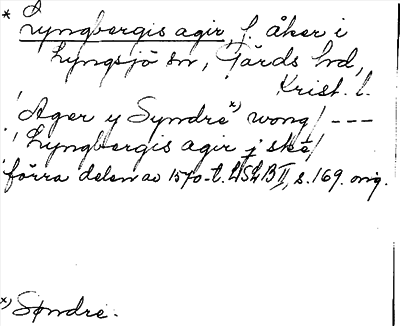 * Lyngbergis agir, f. åker i
Lyngsjö sn, Gärds hd,
Krist. l.
'Ager y Syndre*) wong/ ---
'Lyngbergis agir j ske/
förra delen av 1570-t. LSLB II, s. 169. orig.
*) Søndre.